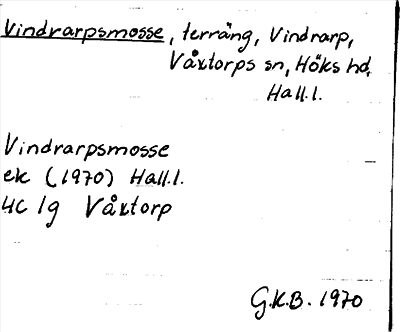 Vindrarpsmosse, terräng, Vindrarp,
Våxtorps sn, Höks hd,
Hall.l.
Vindrarpsmosse
ek (1970) Hall.l.
4C 1g Våxtorp
G.K.B. 1970